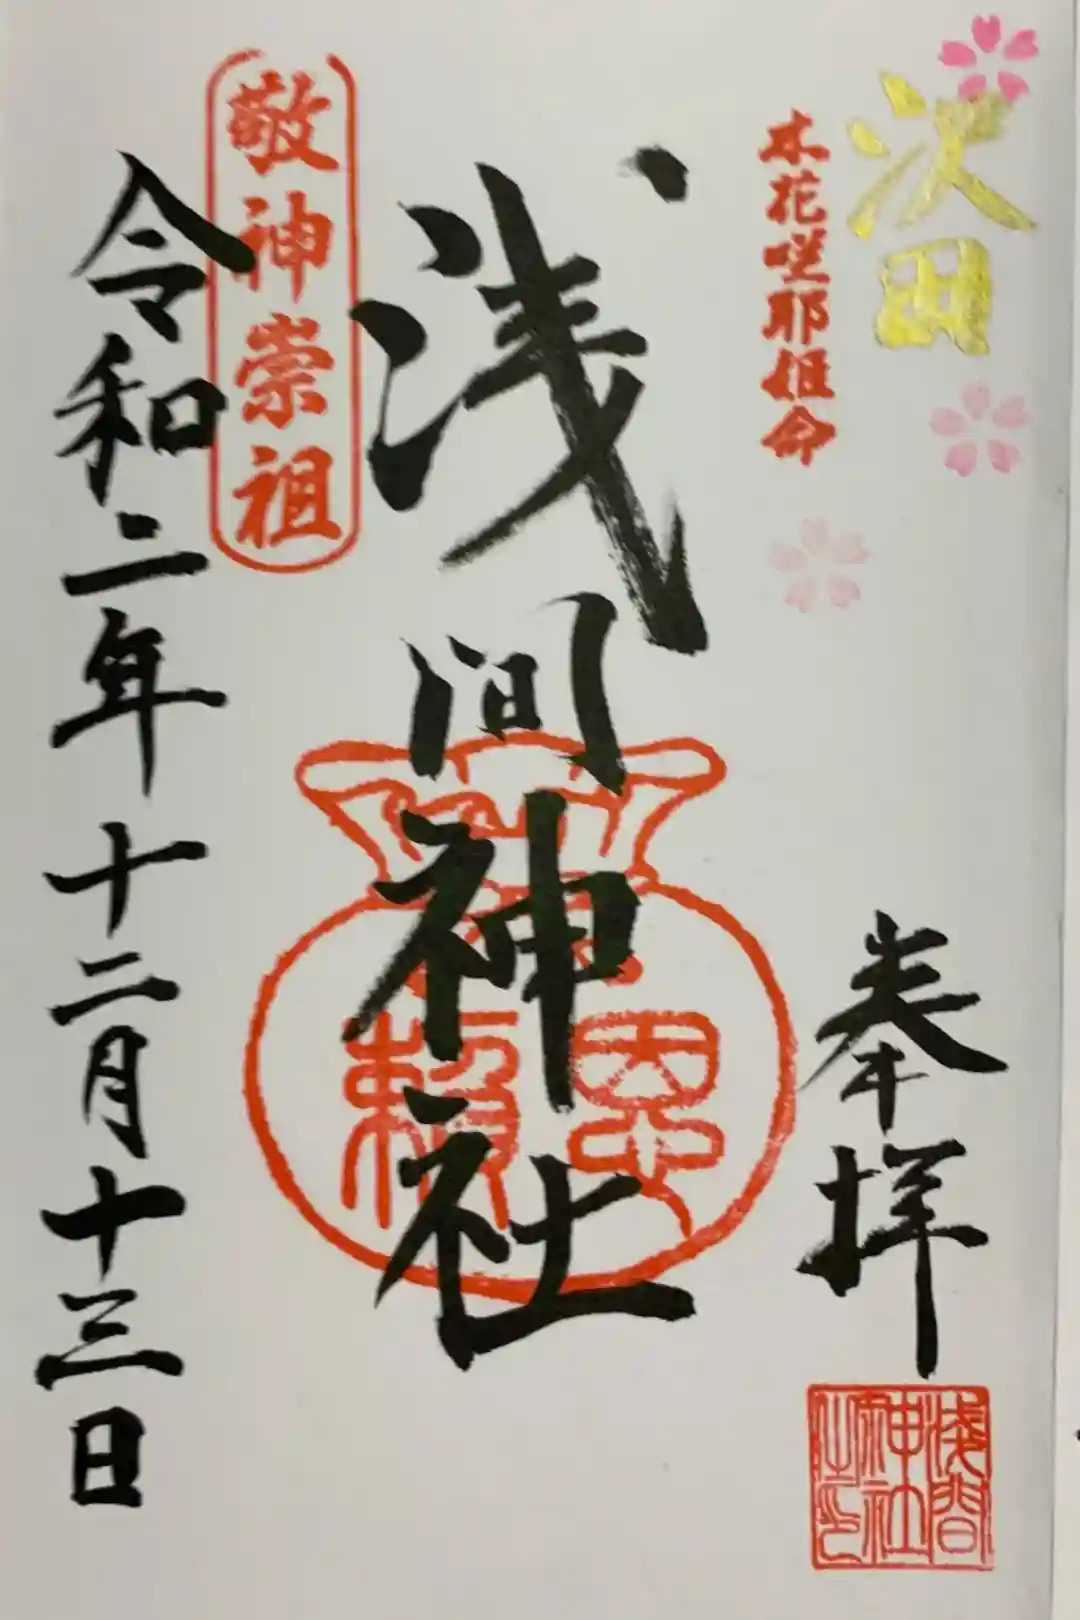 沢田
木花咲耶姫命
奉拝
浅間神社之印
浅間神社
恩
頼
敬神崇祖
令和二年十二月十三日